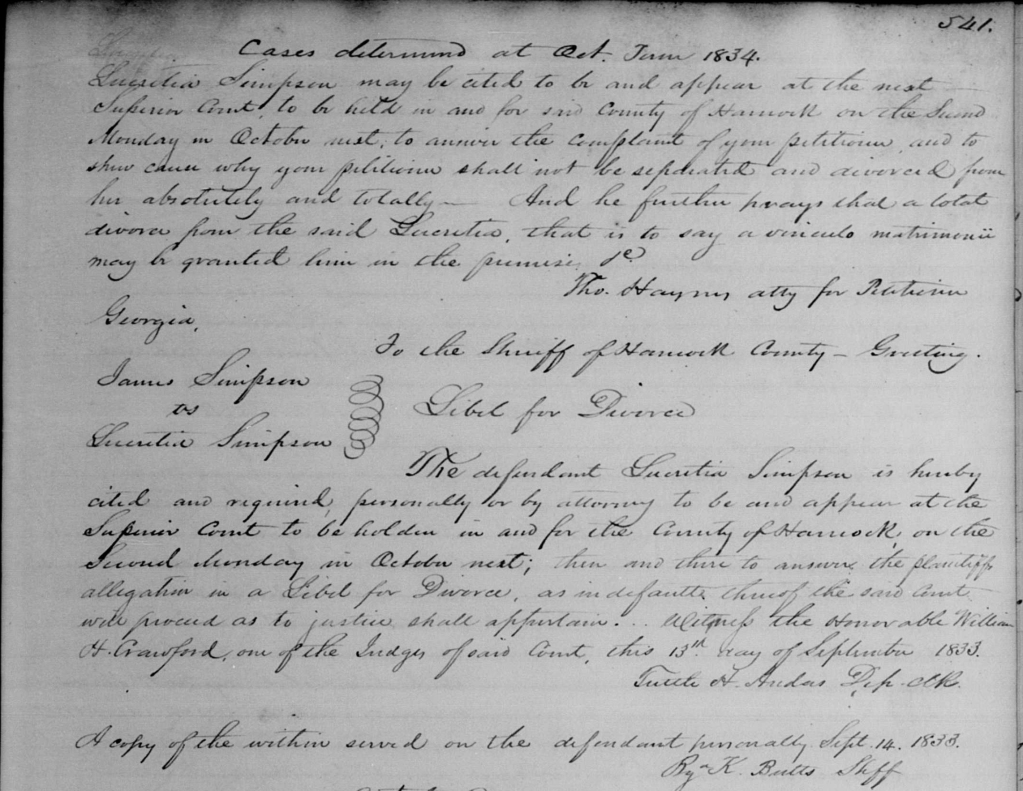 541.
Cases determind at Oct. Term 1834.
Lucretia Simpson may be cited to be and appear at the next
Superior Court, to be held in and for said County of Hancock on the Second
Monday in October next, to answer the complaint of your petitioner, and to
shew cause why your petitioner shall not be separated and divorced from
her absolutely and totally — And he further prays that a total
divorce from the said Lucretia, that is to say a vinculo matrimonii
may be granted him in the premises &c
Tho. Haynes atty for Petitioner
Georgia,
To the Sheriff of Hancock County — Greeting.
James Simpson
vs
Lucretia Simpson
Libel for Divorce
The defendant Lucretia Simpson is hereby
cited and required, personally or by attorney to be and appear at the
Superior Court to be holden in and for the County of Hancock, on the
Second Monday in October next; then and there to answer the plaintiffs
allegation in a Libel for Divorce, as in default thereof the said Court
will proceed as to justice shall appertain. Witness the Honorable William
H. Crawford, one of the Judges of said Court, this 13th day of September 1833.
Tuttle H. Audas Dep. Clk.
A copy of the within served on the defendant personally Sept. 14. 1833.
K. Butts Shff